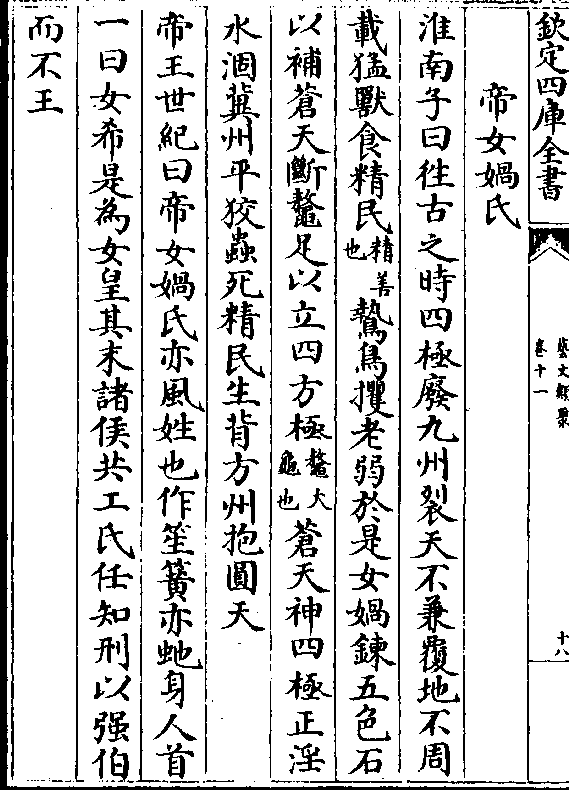 欽定四庫全書
藝文類聚
卷十一
十八
帝女媧氏
淮南子曰徃古之時四極廢九州裂天不兼覆地不周
載猛獸食精民精善也鷙鳥攫老弱於是女媧鍊五色石
以補蒼天斷鼇足以立四方極鼇大龜也蒼天神四極正淫
水涸冀州平狡蟲死精民生背方州抱圓天
帝王世紀曰帝女媧氏亦風姓也作笙簧亦虵身人首
一曰女希是為女皇其末諸侯共工氏任知刑以强伯
而不王